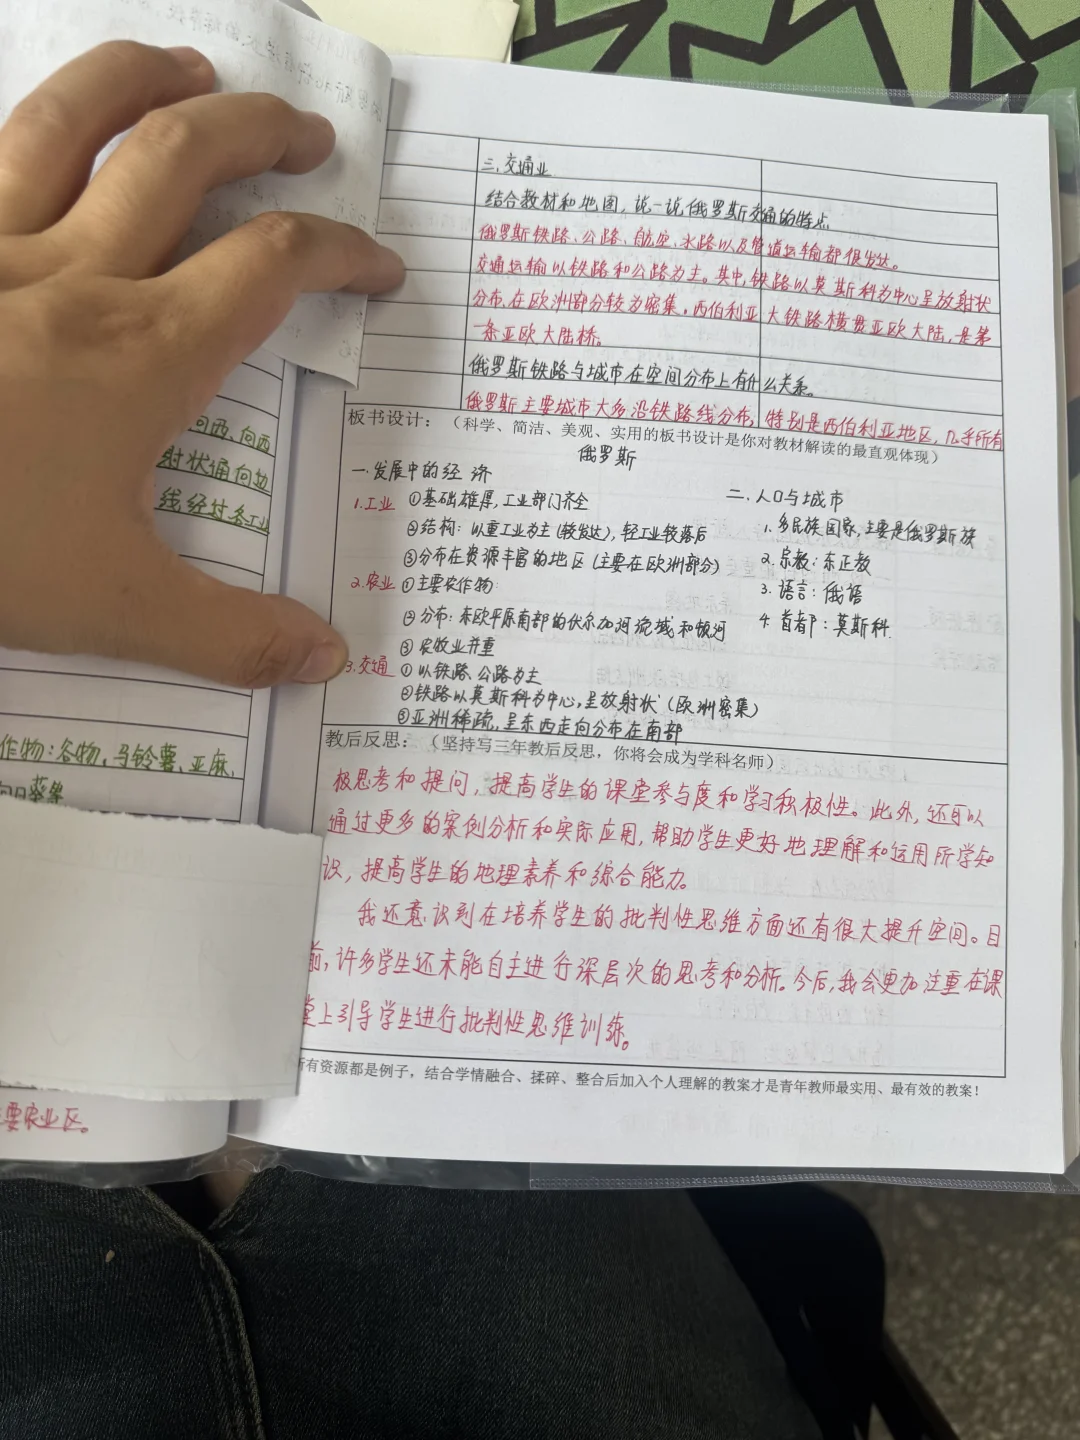 三、交通业
结合教材和地图，说一说俄罗斯交通的特点
俄罗斯铁路、公路、航空、水路以及管道运输都很发达。
交通运输以铁路和公路为主。其中，铁路以莫斯科为中心呈放射状
分布，在欧洲部分较为密集，西伯利亚大铁路横贯亚欧大陆，是第
一条亚欧大陆桥。
俄罗斯铁路与城市在空间分布上有什么关系。
俄罗斯主要城市大多沿铁路线分布，特别是西伯利亚地区，几乎所有
板书设计：（科学、简洁、美观、实用的板书设计是你对教材解读的最直观体现）
俄罗斯
一.发展中的经济
1.工业 ①基础雄厚，工业部门齐全
②结构：以重工业为主（较发达），轻工业较落后
③分布在资源丰富的地区（主要在欧洲部分）
2.农业 ①主要农作物：
②分布：东欧平原南部的伏尔加河流域和顿河
③农牧业并重
3.交通 ①以铁路、公路为主
②铁路以莫斯科为中心，呈放射状（欧洲密集）
③亚洲稀疏，呈东西走向分布在南部
二.人口与城市
1.多民族国家，主要是俄罗斯族
2.宗教：东正教
3.语言：俄语
4.首都：莫斯科.
教后反思：（坚持写三年教后反思，你将会成为学科名师）
极思考和提问，提高学生的课堂参与度和学习积极性。此外，还可以
通过更多的案例分析和实际应用，帮助学生更好地理解和运用所学知
识，提高学生的地理素养和综合能力。
我还意识到在培养学生的批判性思维方面还有很大提升空间。目
前，许多学生还未能自主进行深层次的思考和分析。今后，我会更加注重在课
堂上引导学生进行批判性思维训练。
所有资源都是例子，结合学情融合、揉碎、整合后加入个人理解的教案才是青年教师最实用、最有效的教案！
向西、向西
射状通向边
线经过各工业
作物：谷物，马铃薯、亚麻，
向日葵等
要农业区。